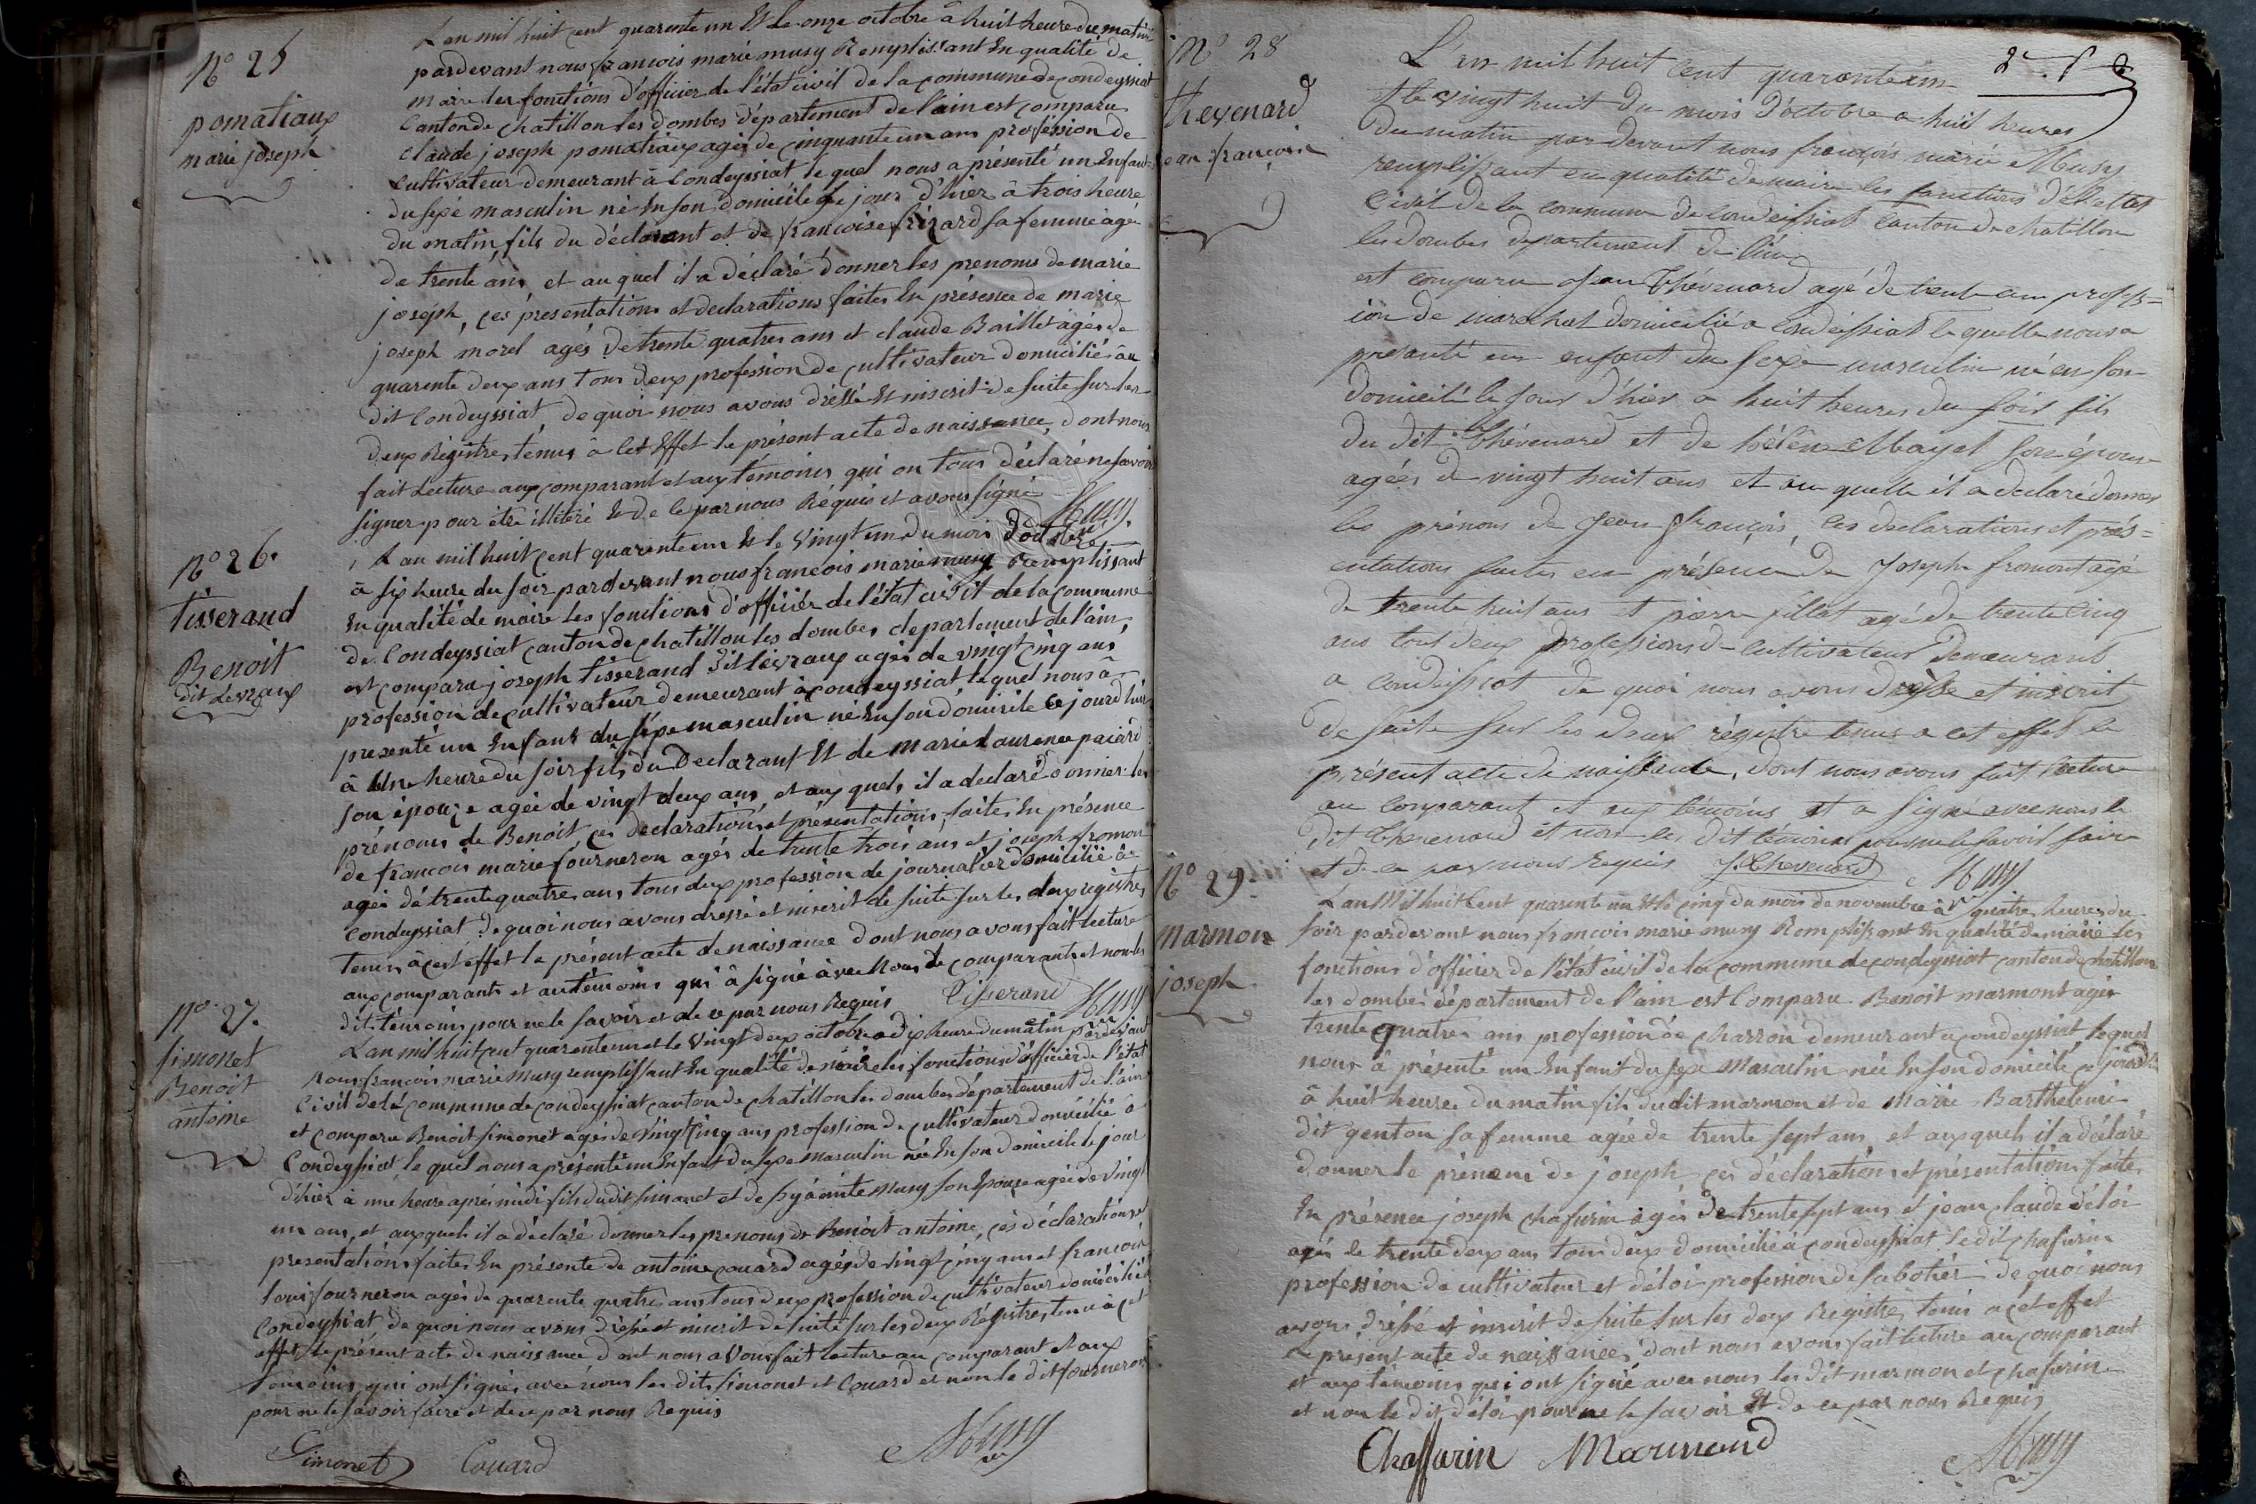 N° 25
pomatiaux
marie joseph
L'an mil huit cent quarente un Et le onze octobre à huit heure du matin
pardevant nous françois marie musy Remplissant En qualité de
maire les fonctions d'officier de l'état civil de la commune de condeyssiat
Canton de chatillon les dombes département de l'ain est comparu
Claude joseph pomatiaux agés de cinquante un ans profession de
Cultivateur demeurant à Condeyssiat le quel nous a présenté un Enfant
du sexe masculin né En son domicile le jour d'hier à trois heure
du matin, fils du déclarant et de françoise frizard sa femme agé
de trente ans, et au quel il a déclaré donner les prenoms de marie
joseph, ces présentations et declarations faites En présence de marie
joseph morel agés de trente quatres ans et claude Baillet agés de
quarente deux ans tous deux profession de cultivateur domiciliés au
dit Condeyssiat, de quoi nous avons dréssé Et inscrit de suite sur les
deux Régistres tenus à cet Effet le présent acte de naissance, dont nous
fait Lecture aux comparant et aux témoins qui on tous déclaré ne savoir
signer pour être illitéré Et de le par nous Réquis et avons signé
Musy
N° 26.
tisserand
Benoit
dit Levraux
L'an mil huit cent quarente un Et le Vingt un du mois d'octobre
à six heure du soir pardevant nous françois marie musy Remplissant
En qualité de maire les fonctions d'officiér de l'état civil de la commune
de Condeyssiat canton de chatillon les dombes departement de l'ain,
est comparu joseph tisserand dit levraux agés de vingt cinq ans
profession de cultivateur demeurant à condeyssiat le quel nous à
presenté un Enfant du séxe masculin né En son domicile ce jourd'huis
à Une heure du soir fils du Declarant Et de marie Laurence paiard
son épouze agée de vingt deux ans, et aux quels il a declaré donner les
prénoms de Benoit ces declarations et présentations, faites En présence
de francois marie fourneron agés de trente trois ans et joseph fromon
agés de trente quatre ans, tous deux profession de journalier domicilié à
Condeyssiat de quoi nous avons dressé et inscrit de suite sur les deux registres
tenus à cet effet le présent acte de naissance dont nous avons fait lecture
aux comparants et au témoins qui à signé avec Nous, le comparants et non les
dits témoins pour ne le savoir et de ce par nous Requis Tisserand Musy
N° 27.
simonet
Benoit
antoine
L'an mil huit cent quarente un et le Vingt deux octobre a dix heure du matin pardevant
Nous françois marie Musy remplissant En qualité de maire les fonctions d'officiér de l'état
Civil de la commune de condeyssiat canton de chatillon les dombes département de l'ain
et comparu Benoit simonet agés de Vingt cinq ans profession de cultivateur domicilié à
Condeyssiat, le quel nous a présenté un Enfant du sexe masculin née En son domicile le jour
d'hiér à une heure aprés midi fils du dit simonet et de hyacinte Musy son Epouse agée de Vingt
un ans, et auxquels il a déclaré donner les prenoms de Benoit antoine, ces déclarations et
presentations faites En présente de antoine couard agés de Vingt cinq ans et francois
Louis fourneron agés de quarente quatre ans tous deux profession de cultivateur domiciliés
Condeyssiat de quoi nous avons dréssé et inscrit de suite sur les deux Régistres tenu à cet
effet le présent acte de naissance dont nous avons fait lecture au comparant et aux
temoins, qui ont signés avec nous les dits simonet et Couard et non le dit fourneron
pour ne le savoir faire et de ce par nous Requis
Simonet Couard Musy
N° 28
thevenard
jean françois
L'an mil huit cent quarante un
et le vingt huit du mois d'octobre a huit heures
du matin par devant nous françois marie Musy
remplissant en qualité de maire les fonctions d'el'etat
Civil de la commune de Condeissiat Canton de chatillon
les dombes departement de l'ain
est comparu Jean Thévenard agé de trente ans profess=
ion de marechal domicilié a Condeissiat le quelle nous a
presanté un enfant du sexe masculin né en son
domicile le jour d'hier a huit heures du soir fils
du dit Thévenard et de hélène Mayet son épouse
agées de vingt huit ans et au quelle il a declaré donner
les prénoms de Jean François, ces declarations et prés=
entations faites en présence de Joseph fromont agé
de trente huit ans et pierre fillat agé de trente cinq
ans tout deux professions de Cultivateur demeurant
a Condeissiat de quoi nous avons dressé et inscrit
de suite sur les deux régistre tenus a cet effet le
présent acte de naissance, dont nous avons fait lecture
au Comparant et aux témoins et a signé avec nous le
dit thevenard et non les dit témoins pour ne le savoir faire
et de ce par nous requis J Thevenard Musy
N° 29.
Marmon
joseph
L'an Mil huit Cent quarente un Et le cinq du mois de novembre à quatre heures du
soir pardevant nous francois marie musy Remplissant En qualité de maire les
fonctions d'officier de l'état civil de la commune de condeyssiat canton de chatillon
les dombes département de l'ain est Comparu Benoit marmont agés
trente quatres ans profession de charron demeurant a condeyssiat, le quel
nous à présenté un Enfant du sexe Masculin née En son domicile ce jourd'h
à huit heures du matin fils du dit marmon et de Marie Barthelemi
dit genton sa femme agée de trente sept ans, et auxquels il a déclaré
donner le prénom de joseph, ces déclarations et présentations faites
En présence joseph chafurin agés de trente sept ans et jean claude déloi
agés de trente deux ans tous deux domicilié à condeyssiat le dit chafurin
profession de cultivateur et déloi profession de sabotiér de quoi nous
avons dréssé et inscrit de suite sur les deux Registre, tenu a cet effet
Le présent acte de naissances dont nous avons fait lecture au comparant
et aux temoins qui ont signé avec nous les dit marmon et chafurin
et non le dit déloi pour ne le savoir Et de ce par nous Requis
Chaffurin Marmond Musy